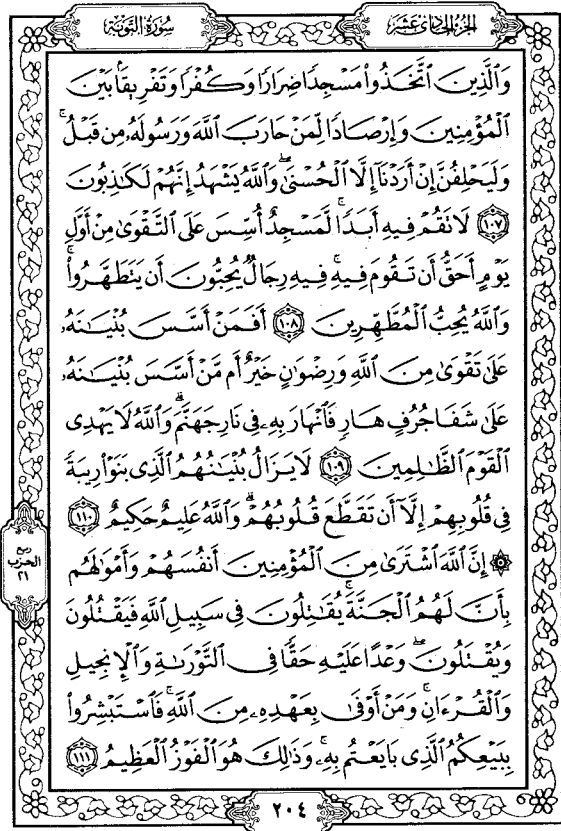 سُورَةُ التَّوْبَةِ
الجُزْءُ الحَادِي عَشَرَ
وَٱلَّذِينَ ٱتَّخَذُوا۟ مَسْجِدًا ضِرَارًا وَكُفْرًا وَتَفْرِيقًۢا بَيْنَ
ٱلْمُؤْمِنِينَ وَإِرْصَادًا لِّمَنْ حَارَبَ ٱللَّهَ وَرَسُولَهُۥ مِن قَبْلُ ۚ
وَلَيَحْلِفُنَّ إِنْ أَرَدْنَآ إِلَّا ٱلْحُسْنَىٰ ۖ وَٱللَّهُ يَشْهَدُ إِنَّهُمْ لَكَـٰذِبُونَ
﴿١٠٧﴾ لَا تَقُمْ فِيهِ أَبَدًا ۚ لَّمَسْجِدٌ أُسِّسَ عَلَى ٱلتَّقْوَىٰ مِنْ أَوَّلِ
يَوْمٍ أَحَقُّ أَن تَقُومَ فِيهِ ۚ فِيهِ رِجَالٌ يُحِبُّونَ أَن يَتَطَهَّرُوا۟ ۚ
وَٱللَّهُ يُحِبُّ ٱلْمُطَّهِّرِينَ ﴿١٠٨﴾ أَفَمَنْ أَسَّسَ بُنْيَـٰنَهُۥ
عَلَىٰ تَقْوَىٰ مِنَ ٱللَّهِ وَرِضْوَٰنٍ خَيْرٌ أَم مَّنْ أَسَّسَ بُنْيَـٰنَهُۥ
عَلَىٰ شَفَا جُرُفٍ هَارٍ فَٱنْهَارَ بِهِۦ فِى نَارِ جَهَنَّمَ ۗ وَٱللَّهُ لَا يَهْدِى
ٱلْقَوْمَ ٱلظَّـٰلِمِينَ ﴿١٠٩﴾ لَا يَزَالُ بُنْيَـٰنُهُمُ ٱلَّذِى بَنَوْا۟ رِيبَةً
فِى قُلُوبِهِمْ إِلَّآ أَن تَقَطَّعَ قُلُوبُهُمْ ۗ وَٱللَّهُ عَلِيمٌ حَكِيمٌ ﴿١١٠﴾
۞ إِنَّ ٱللَّهَ ٱشْتَرَىٰ مِنَ ٱلْمُؤْمِنِينَ أَنفُسَهُمْ وَأَمْوَٰلَهُم
بِأَنَّ لَهُمُ ٱلْجَنَّةَ ۚ يُقَـٰتِلُونَ فِى سَبِيلِ ٱللَّهِ فَيَقْتُلُونَ
وَيُقْتَلُونَ ۖ وَعْدًا عَلَيْهِ حَقًّا فِى ٱلتَّوْرَىٰةِ وَٱلْإِنجِيلِ
وَٱلْقُرْءَانِ ۚ وَمَنْ أَوْفَىٰ بِعَهْدِهِۦ مِنَ ٱللَّهِ ۚ فَٱسْتَبْشِرُوا۟
بِبَيْعِكُمُ ٱلَّذِى بَايَعْتُم بِهِۦ ۚ وَذَٰلِكَ هُوَ ٱلْفَوْزُ ٱلْعَظِيمُ ﴿١١١﴾
ربع
الحزب
٢١
٢٠٤